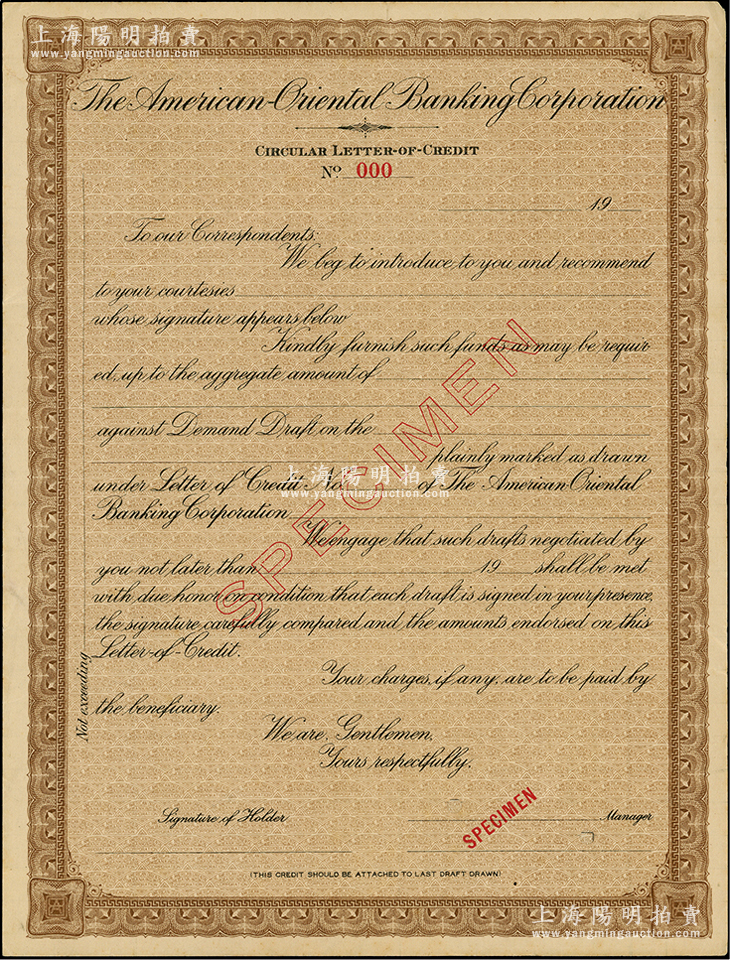 上海陽明拍賣
www.yangmingauction.com
The American-Oriental Banking Corporation
CIRCULAR LETTER-OF-CREDIT
No 000
19
To our Correspondents:
We beg to introduce to you and recommend
to your courtesies
whose signature appears below
Kindly furnish such funds as may be requir
ed, up to the aggregate amount of
against Demand Draft on the
plainly marked as drawn
under Letter of Credit No. of The American Oriental
Banking Corporation.
上海陽明拍賣
www.yangmingauction.com
SPECIMEN
We engage that such drafts negotiated by
you not later than 19 shall be met
with due honor on condition that each draft is signed in your presence,
the signature carefully compared and the amounts endorsed on this
Letter-of-Credit.
Not exceeding
Your charges, if any, are to be paid by
the beneficiary.
We are, Gentlemen,
Yours respectfully,
Signature of Holder
SPECIMEN
Manager
(THIS CREDIT SHOULD BE ATTACHED TO LAST DRAFT DRAWN)
上海陽明拍賣
www.yangmingauction.com